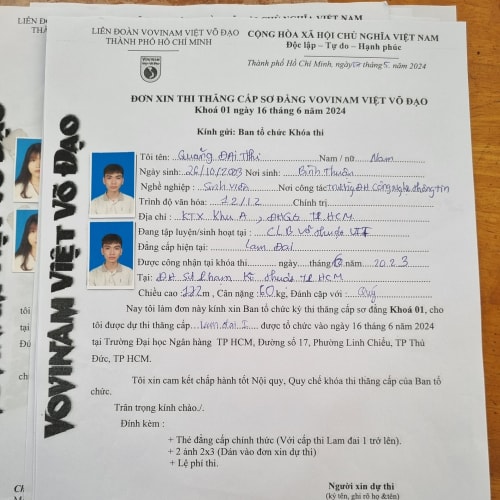 LIÊN ĐOÀN VOVINAM VIỆT VÕ ĐẠO
THÀNH PHỐ HỒ CHÍ MINH
CỘNG HÒA XÃ HỘI CHỦ NGHĨA VIỆT NAM
Độc lập – Tự do – Hạnh phúc
Thành phố Hồ Chí Minh, ngày tháng 5 năm 2024
ĐƠN XIN THI THĂNG CẤP SƠ ĐẲNG VOVINAM VIỆT VÕ ĐẠO
Khoá 01 ngày 16 tháng 6 năm 2024
Kính gửi: Ban tổ chức Khóa thi
Tôi tên: Quảng Đại Thi Nam / nữ Nam
Ngày sinh: 26/10/2003 Nơi sinh: Bình Thuận
Nghề nghiệp: Sinh viên Nơi công tác: trường ĐH Công nghệ thông tin
Trình độ văn hóa: 12/12 Chính trị
Địa chỉ: KTX Khu A, ĐHQG TP.HCM
Đang tập luyện/sinh hoạt tại: CLB Võ thuật
Đẳng cấp hiện tại: Lam Đai
Được công nhận tại khóa thi ngày tháng 6 năm 2023
Tại: ĐH Sư Phạm Kĩ thuật TP.HCM
Chiều cao: m, Cân nặng 60 kg, Đánh cặp với: Quý
Nay tôi làm đơn này kính xin Ban tổ chức kỳ thi thăng cấp sơ đẳng Khoá 01, cho
tôi được dự thi thăng cấp Lam đai I được tổ chức vào ngày 16 tháng 6 năm 2024
tại Trường Đại học Ngân hàng TP HCM, Đường số 17, Phường Linh Chiểu, TP Thủ
Đức, TP HCM.
Tôi xin cam kết chấp hành tốt Nội quy, Quy chế khóa thi thăng cấp của Ban tổ
chức.
Trân trọng kính chào./.
Đính kèm :
+ Thẻ đẳng cấp chính thức (Với cấp thi Lam đai 1 trở lên).
+ 2 ảnh 2x3 (Dán vào đơn xin dự thi)
+ Lệ phí thi.
Người xin dự thi
(ký tên, ghi rõ họ & tên)
VOVINAM VIỆT VÕ ĐẠO